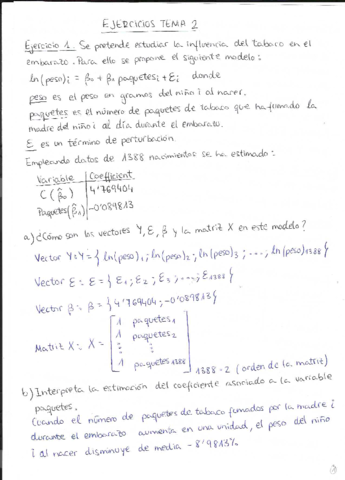 EJERCICIOS TEMA 2
Ejercicio 1. Se pretende estudiar la influencia del tabaco en el
embarazo. Para ello se propone el siguiente modelo:
ln(peso)i = β0 + β1 paquetesi + Ei donde
peso es el peso en gramos del niño i al nacer.
paquetes es el número de paquetes de tabaco que ha fumado la
madre del niño i al día durante el embarazo.
E es un término de perturbación.
Empleando datos de 1388 nacimientos se ha estimado:
Variable | Coefficient
C (β̂0) | 4'769404
Paquetes(β̂1) | -0'089813
a) ¿Cómo son los vectores Y, E, β y la matriz X en este modelo?
Vector Y: Y = { ln(peso)1 ; ln(peso)2 ; ln(peso)3 ; ... ; ln(peso)1388 }
Vector E: E = { E1 ; E2 ; E3 ; ... ; E1388 }
Vector β: β = { 4'769404 ; -0'089813 }
Matriz X: X = [ 1 paquetes1
1 paquetes2
⋮ ⋮
1 paquetes1388 ] 1388-2 (orden de la matriz)
b) Interpreta la estimación del coeficiente asociado a la variable
paquetes.
Cuando el número de paquetes de tabaco fumados por la madre i
durante el embarazo aumenta en una unidad, el peso del niño
i al nacer disminuye de media -8'9813%